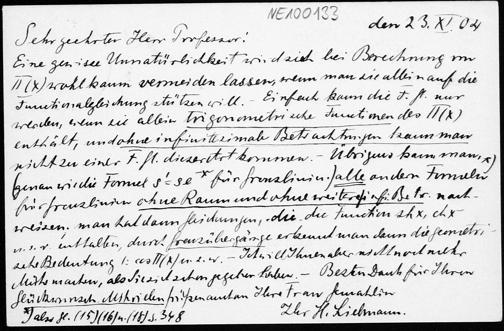 NE100133
den 23. XI. 04
Sehr geehrter Herr Professor!
Eine gewisse Unnatürlichkeit wird sich bei Berechnung von
Π(x) wohl kaum vermeiden lassen, wenn man sie allein auf die
Functionalgleichung stützen will. – Einfach kann die F. gl. nur
werden, wenn sie allein trigonometrische Functionen des Π(x)
enthält, und ohne infinitesimale Betrachtungen kann man
nicht zu einer F. gl. dieser Art kommen. – Übrigens kann man, *)
(genau wie die Formel s' = s e^x für Grenzlinien) alle andern Formeln
für Grenzlinien ohne Raum und ohne weitere infi. Betr. nach-
weisen. man hat dann Gleichungen, die die Function sh x, ch x
u. s. w. enthalten, durch Grenzübergänge erkennt man dann die geometri-
sche Bedeutung 1: cos Π(x) u. s. w. – Ich will Ihnen aber nicht noch mehr
Mühe machen, als Sie sich schon gegeben haben. – Besten Dank für Ihren
Glückwunsch. Mit Grüßen an Ihre Frau Gemahlin
Ihr H. Liebmann.
*) also gl. (15) (16) u. (18) S. 348